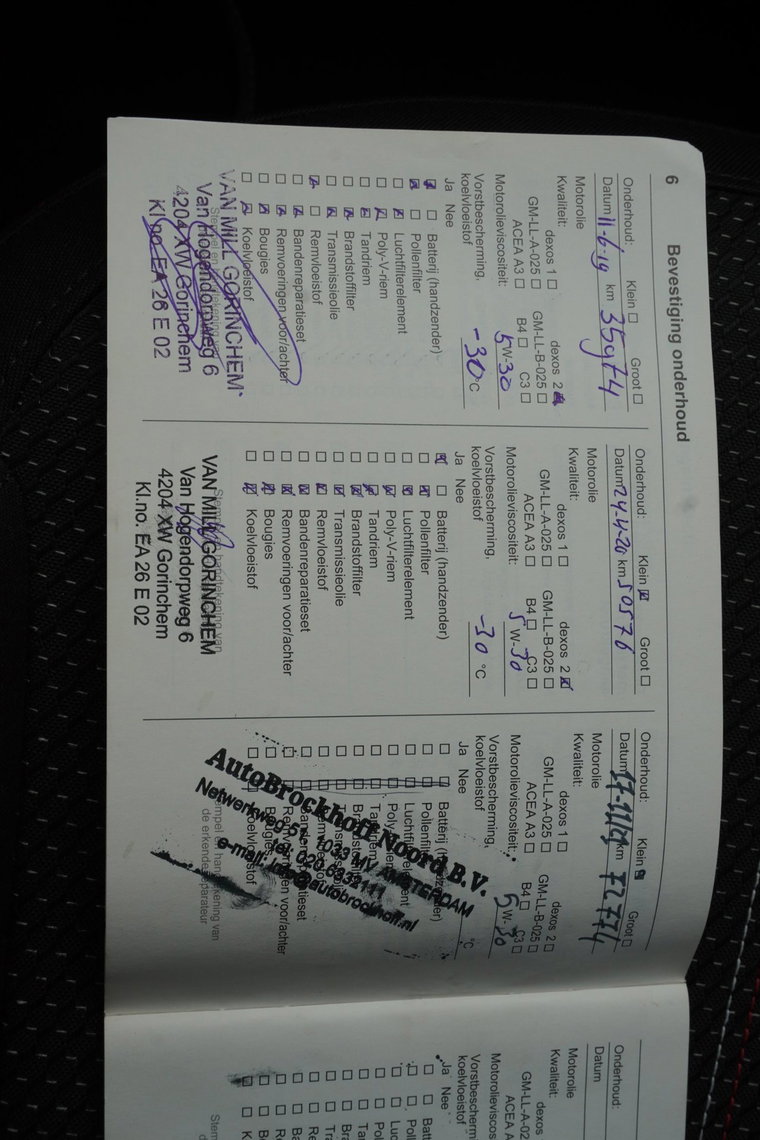 6 Bevestiging onderhoud
Onderhoud: Klein ☐ Groot ☐
Datum 11-6-19 km 35974
Motorolie
Kwaliteit: dexos 1 ☐ dexos 2 ☒
GM-LL-A-025 ☐ GM-LL-B-025 ☐
ACEA A3 ☐ B4 ☐ C3 ☐
Motorolieviscositeit: 5 W-30
Vorstbescherming,
koelvloeistof -30 °C
Ja Nee
☒ ☐ Batterij (handzender)
☒ ☐ Pollenfilter
☐ ☒ Luchtfilterelement
☐ ☒ Poly-V-riem
☐ ☒ Tandriem
☐ ☒ Brandstoffilter
☐ ☒ Transmissieolie
☒ ☐ Remvloeistof
☐ ☒ Bandenreparatieset
☐ ☒ Remvoeringen voor/achter
☐ ☒ Bougies
☐ ☒ Koelvloeistof
VAN MILL GORINCHEM
Van Hogendorpweg 6
4204 XW Gorinchem
Kl.no. EA 26 E 02
Onderhoud: Klein ☒ Groot ☐
Datum 24-4-20 km 50576
Motorolie
Kwaliteit: dexos 1 ☐ dexos 2 ☒
GM-LL-A-025 ☐ GM-LL-B-025 ☐
ACEA A3 ☐ B4 ☐ C3 ☐
Motorolieviscositeit: 5 W-30
Vorstbescherming,
koelvloeistof -30 °C
Ja Nee
☒ ☐ Batterij (handzender)
☐ ☒ Pollenfilter
☐ ☒ Luchtfilterelement
☐ ☒ Poly-V-riem
☐ ☒ Tandriem
☐ ☒ Brandstoffilter
☐ ☒ Transmissieolie
☐ ☒ Remvloeistof
☐ ☒ Bandenreparatieset
☐ ☒ Remvoeringen voor/achter
☐ ☒ Bougies
☐ ☒ Koelvloeistof
VAN MILL GORINCHEM
Van Hogendorpweg 6
4204 XW Gorinchem
Kl.no. EA 26 E 02
Onderhoud: Klein ☒ Groot ☐
Datum km 72774
Motorolie
Kwaliteit: dexos 1 ☐ dexos 2 ☐
GM-LL-A-025 ☐ GM-LL-B-025 ☐
ACEA A3 ☐ B4 ☐ C3 ☐
Motorolieviscositeit: 5 W-30
Vorstbescherming,
koelvloeistof °C
Ja Nee
Batterij
Pollenfilter
AutoBrockhoff Noord B.V.
Netwerkweg 5, 1033 MV AMSTERDAM
Tel: 020-6333111
e-mail: info@autobrockhoff.nl
Stempel en handtekening van
de erkende reparateur
Onderhoud:
Datum
Motorolie
Kwaliteit: dexos
GM-LL-A-02
ACEA A
Motorolieviscositeit:
Vorstbescherm
koelvloeistof
Ja Nee
☐ ☐ Batt
☐ ☐ Poll
☐ ☐ Luc
☐ ☐ Pol
☐ ☐ Ta
☐ ☐ Br
☐ ☐ Tra
☐ ☐ Re
☐ ☐ Ba
☐ ☐ Re
☐ ☐ B
☐ ☐ K
Stem
d